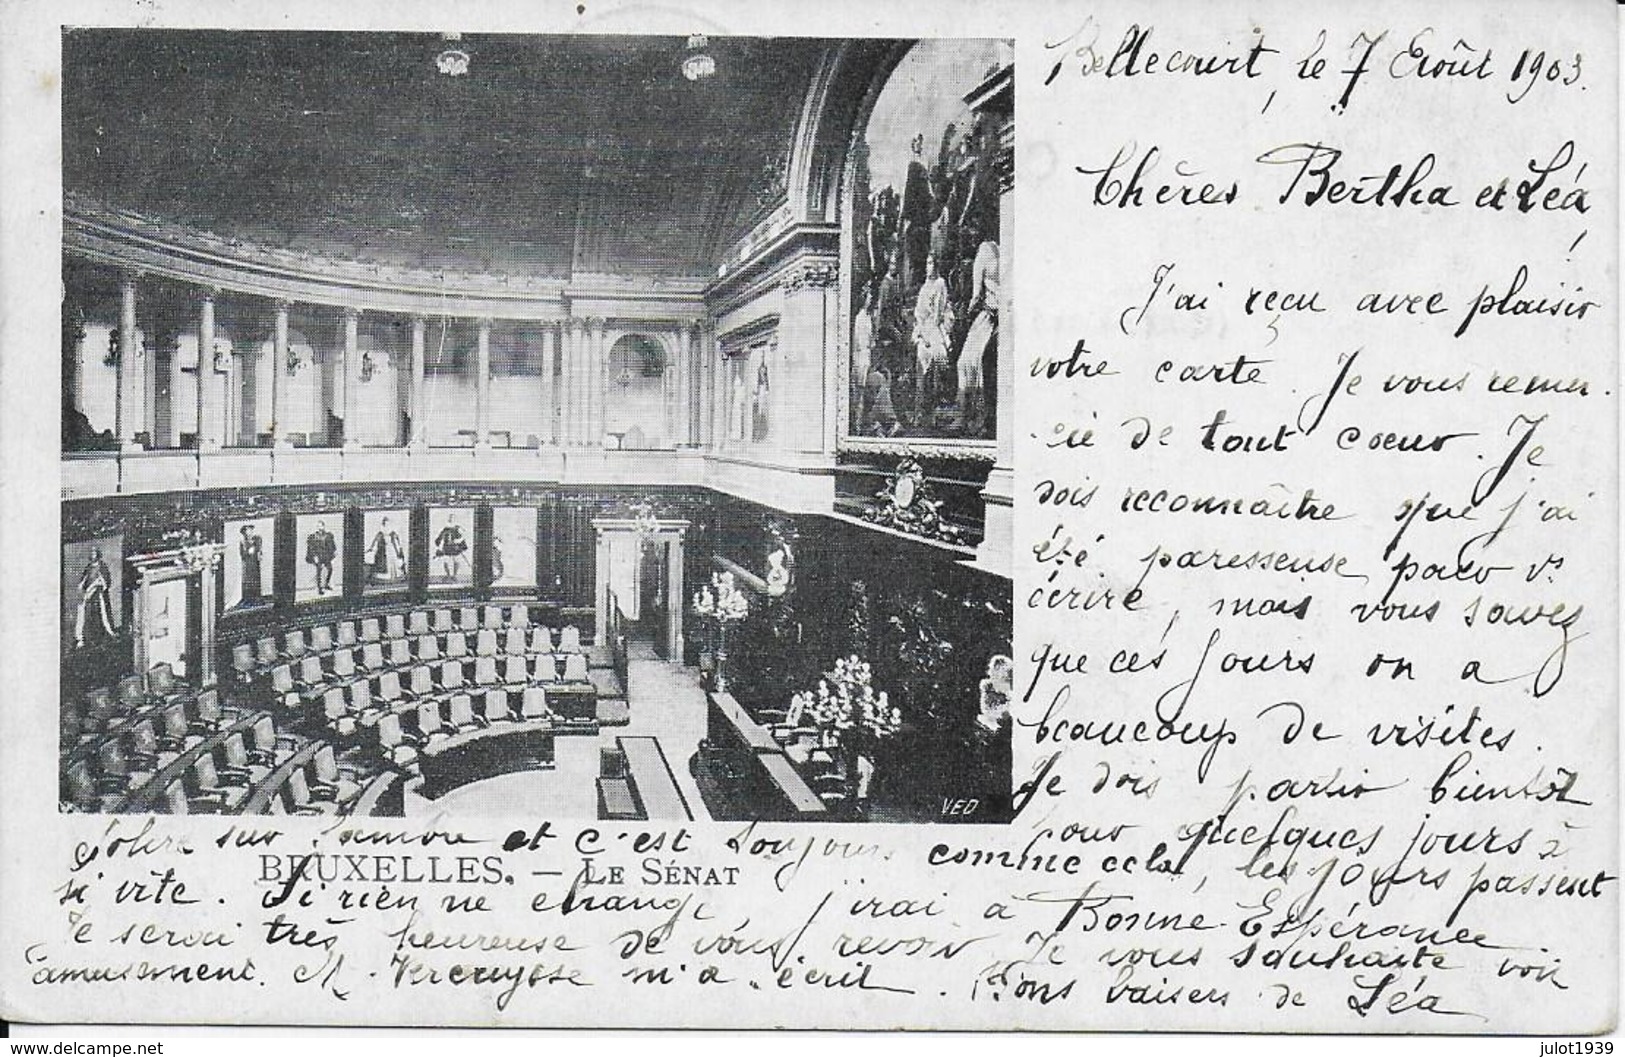 Bellecourt, le 7 Août 1903.
Chères Bertha et Léa,
J'ai reçu avec plaisir
votre carte. Je vous remer-
cie de tout coeur. Je
dois reconnaître que j'ai
été paresseuse pour vs
écrire, mais vous savez
que ces jours on a
beaucoup de visites.
Je dois partir bientôt
pour quelques jours à
sur Sambre et c'est toujours comme cela, les jours passent
si vite. Si rien ne change, j'irai à Bonne-Espérance
Je serai très heureuse de vous revoir. Je vous souhaite
amusement. M. Vercruysse m'a écrit. Bons baisers de Léa
VED
BRUXELLES. — LE SÉNAT
delcampe.net
julot1939